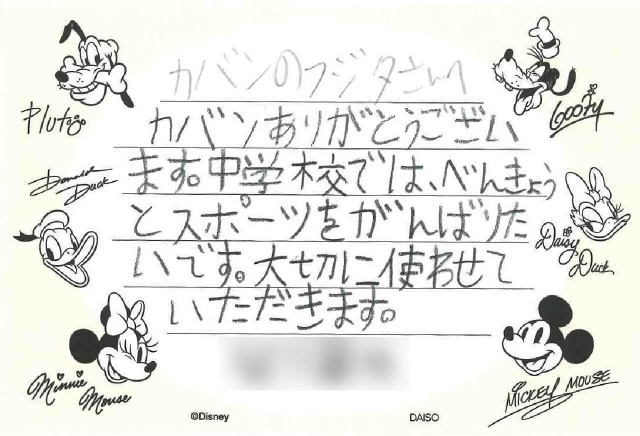 カバンのフジタさんへ
カバンありがとうござい
ます。中学校では、べんきょう
とスポーツをがんばりた
いです。大切に使わせて
いただきます。
Pluto
Goofy
Donald Duck
Daisy Duck
Minnie Mouse
MICKEY MOUSE
©Disney
DAISO